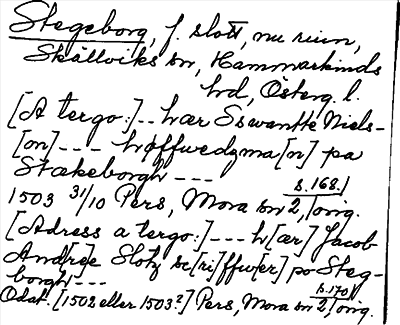 Stegeborg, f. slott, nu ruin,
Skällviks sn, Hammarkinds
hd, Österg. l.
[A tergo:] -- hær Sswantte Niels-
[on] --- höffwedzma[n] pa
Stækeborgh ---
s.168.
1503 31/10 Pers, Mora sn 2, orig.
[Adress a tergo:] --- h[ær] Jacob
And[re] Slotz sc[ri]ffw[er] po Steg-
borgh ---
s.170
Odat. [1502 eller 1503?] Pers, Mora sn 2, orig.